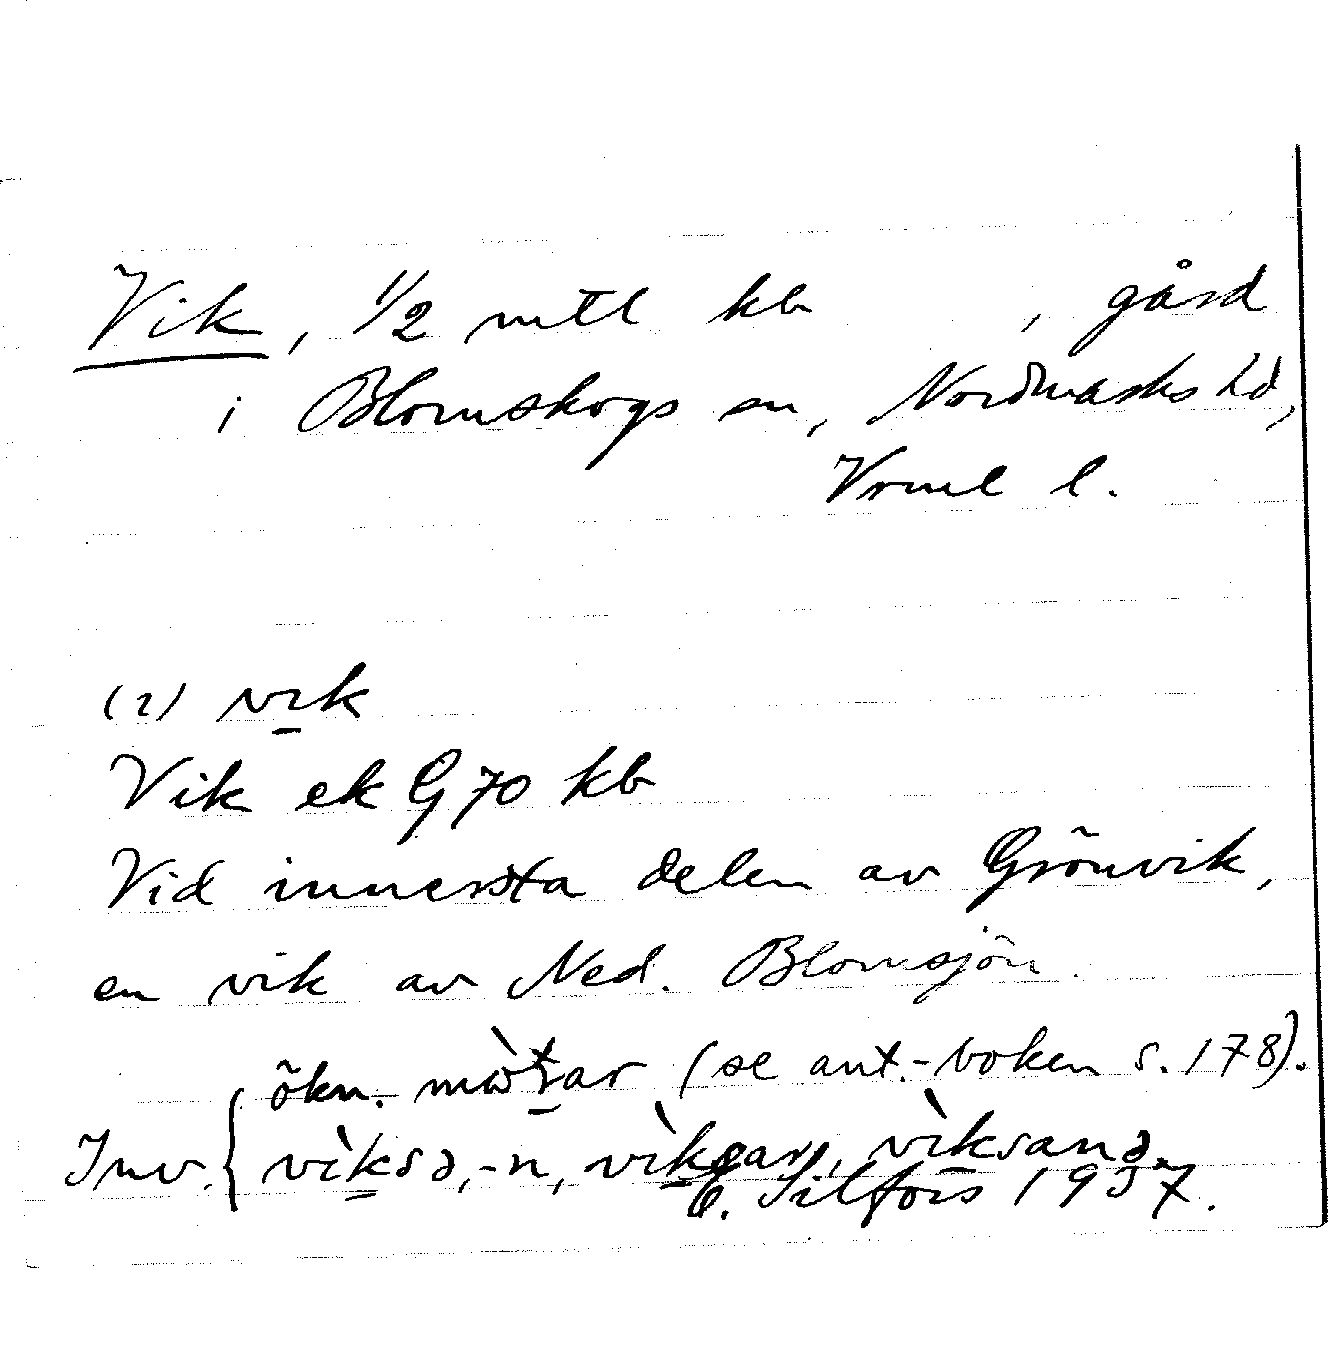 Vik, 1/2 mtl kb , gård
i Blomskogs sn, Nordmarks hd,
Vrml l.
(1) vik
Vik ek G 70 kb
Vid innersta delen av Grönvik,
en vik av Ned. Blomsjön.
ökn. (se ant.-boken s. 178).
Inv. { vìksə, -n, vìksar, vìksanə.
E. Silfors 1937.